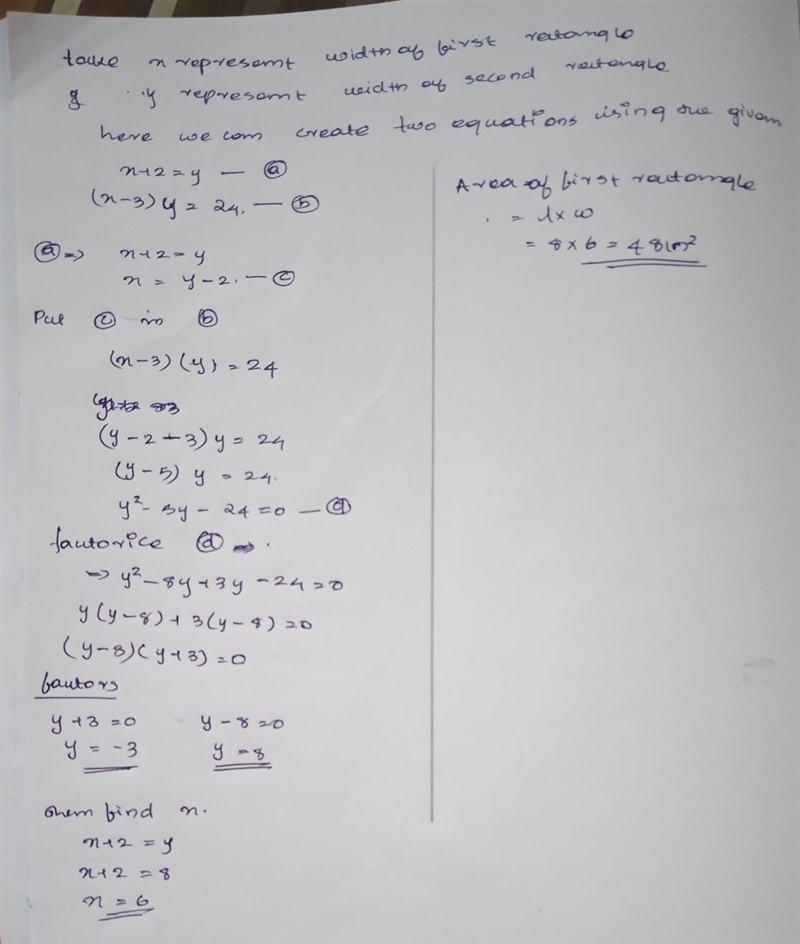 take x represent width of first rectangle
y represent width of second rectangle
here we can create two equations using the given
x+2=y — ⓐ
(x-3)y = 24. — ⓑ
ⓐ => x+2=y
x = y-2. — ⓒ
Put ⓒ in ⓑ
(x-3)(y) = 24
(y-2-3)y = 24
(y-5) y = 24.
y²-5y-24=0 — ⓓ
factorice ⓓ => .
=> y²-8y+3y-24=0
y(y-8)+3(y-8)=0
(y-8)(y+3)=0
factors
y+3=0 y-8=0
y = -3 y=8
then find x.
x+2=y
x+2=8
x=6
Area of first rectangle
= l×w
= 8×6=48cm²